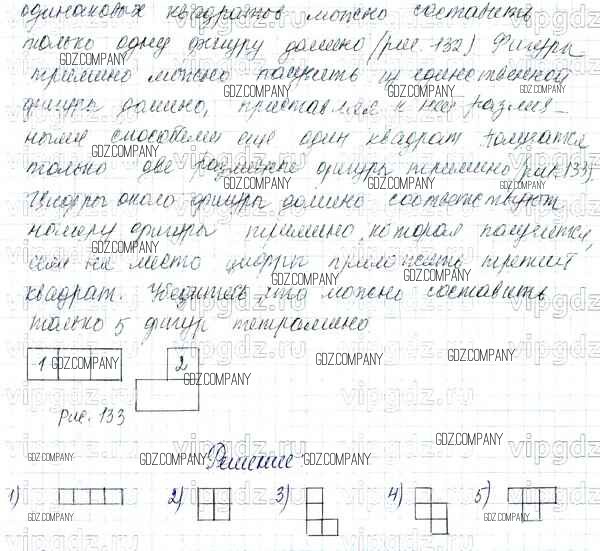 одинаковых квадратов можно составить
только одну фигуру домино (рис. 132) Фигуры
тримино можно получить из единственной
фигуры домино, приставляя к ней различ-
ными способами еще один квадрат получатся
только две различные фигуры тримино (рис. 133)
Цифры около фигуры домино соответствуют
номеру фигуры тримино, которая получается,
если на место цифры приложить третий
квадрат. Убедитесь, что можно составить
только 5 фигур тетрамино.
1 2
рис. 133
Решение
1) 2) 3) 4) 5)
GDZ.COMPANY
vipgdz.ru